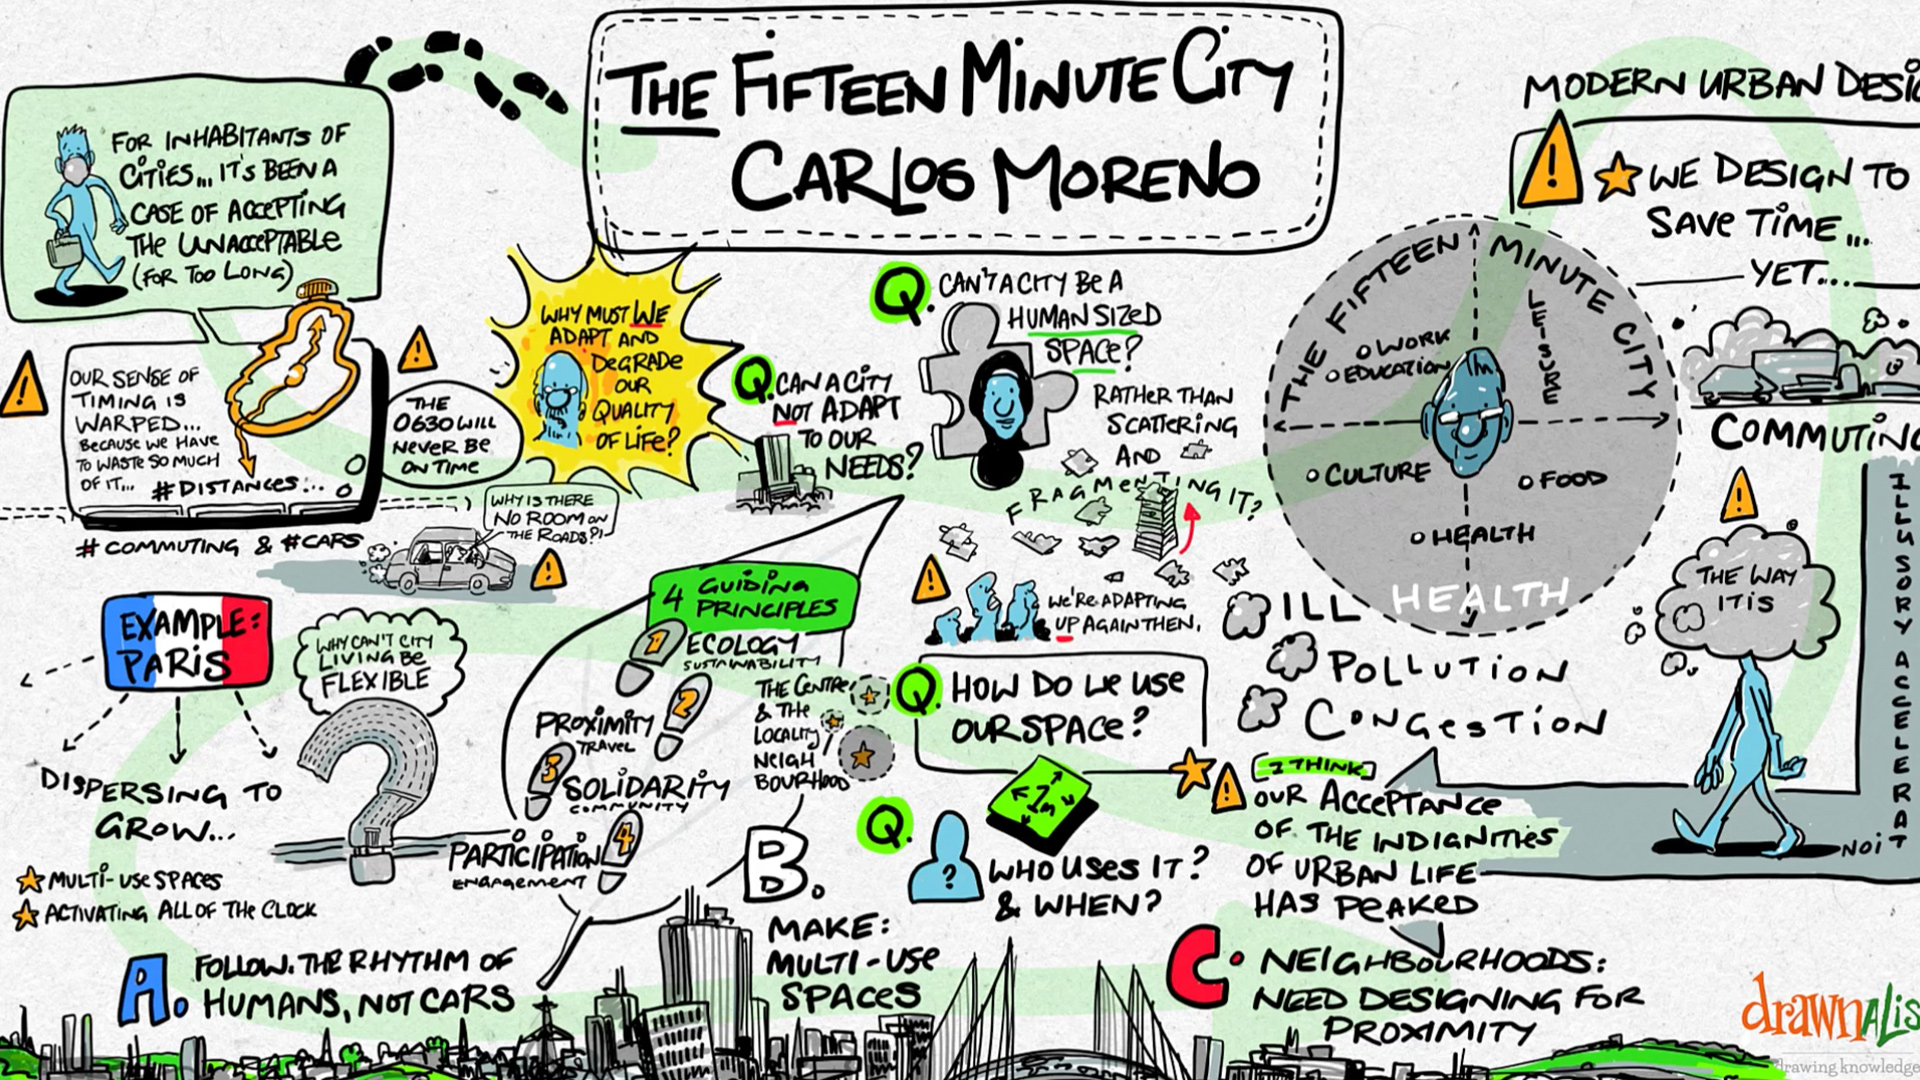 THE FIFTEEN MINUTE CITY
CARLOS MORENO
FOR INHABITANTS OF
CITIES... IT'S BEEN A
CASE OF ACCEPTING
THE UNACCEPTABLE
(FOR TOO LONG)
OUR SENSE OF
TIMING IS
WARPED...
BECAUSE WE HAVE
TO WASTE SO MUCH
OF IT... #DISTANCES...
# COMMUTING & #CARS
THE
0630 WILL
NEVER BE
ON TIME
WHY IS THERE
NO ROOM ON
THE ROADS?!
WHY MUST WE
ADAPT AND
DEGRADE
OUR
QUALITY
OF LIFE?
Q. CAN A CITY
NOT ADAPT
TO OUR
NEEDS?
Q. CAN'T A CITY BE A
HUMAN SIZED
SPACE?
RATHER THAN
SCATTERING
AND
FRAGMENTING IT?
WE'RE ADAPTING
UP AGAIN THEN.
THE FIFTEEN MINUTE CITY
LEISURE
WORK
EDUCATION
CULTURE
FOOD
HEALTH
ILL HEALTH
POLLUTION
CONGESTION
MODERN URBAN DESIG
WE DESIGN TO
SAVE TIME...
YET...
COMMUTING
THE WAY
IT IS
ILLUSORY ACCELERAT
NOIT
EXAMPLE:
PARIS
DISPERSING TO
GROW...
MULTI-USE SPACES
ACTIVATING ALL OF THE CLOCK
WHY CAN'T CITY
LIVING BE
FLEXIBLE
4 GUIDING
PRINCIPLES
1 ECOLOGY
SUSTAINABILITY
2 PROXIMITY
TRAVEL
3 SOLIDARITY
COMMUNITY
4 PARTICIPATION
ENGAGEMENT
THE CENTRE
& THE
LOCALITY
NEIGH
BOURHOOD
Q. HOW DO WE USE
OUR SPACE?
1m
Q.
?
WHO USES IT?
& WHEN?
I THINK
OUR ACCEPTANCE
OF THE INDIGNITIES
OF URBAN LIFE
HAS PEAKED
A. FOLLOW. THE RHYTHM OF
HUMANS, NOT CARS
B.
MAKE:
MULTI-USE
SPACES
C. NEIGHBOURHOODS:
NEED DESIGNING FOR
PROXIMITY
drawnalis
drawing knowledge